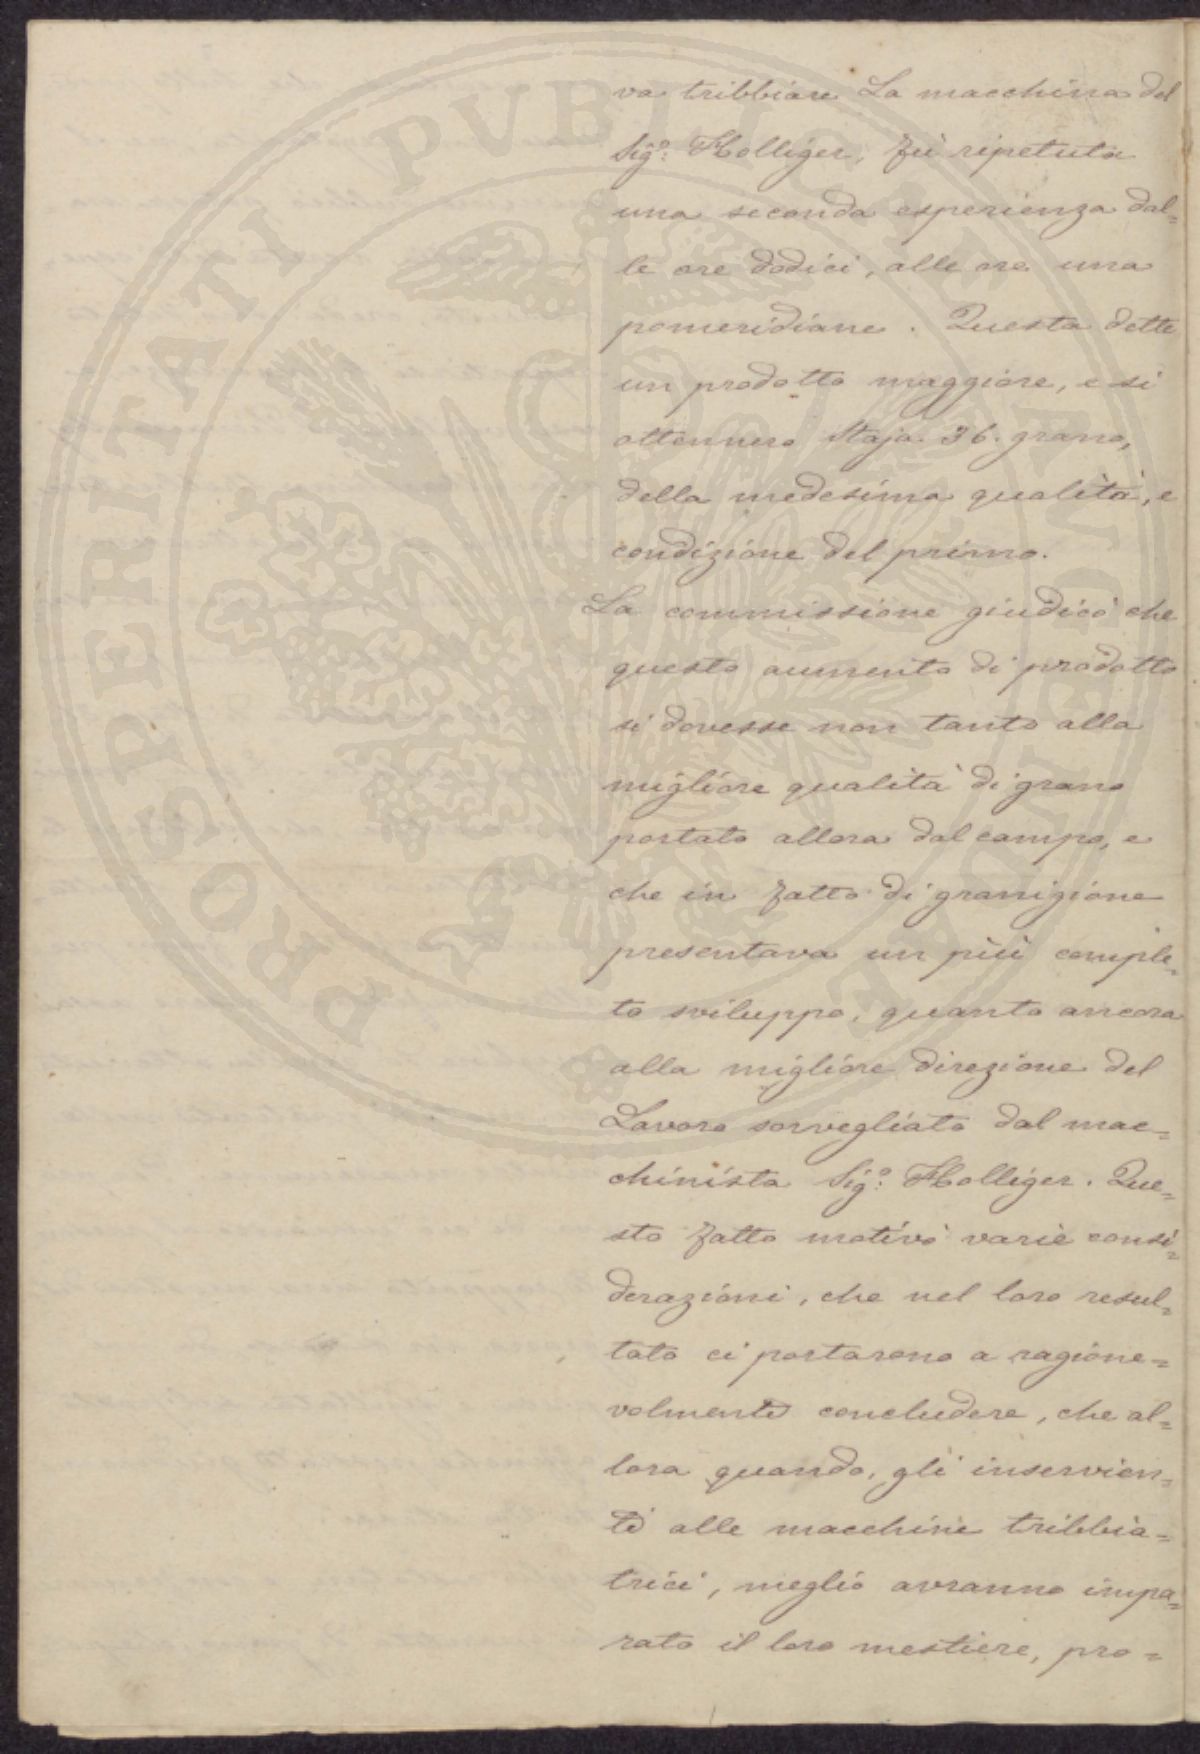 va tribbiare La macchina del
Sigº: Holliger, fù ripetuta
una seconda esperienza dal=
le ore dodici, alle ore una
pomeridiane. Questa dette
un prodotto maggiore, e si
ottennero Staja 36. grano,
della medesima qualità, e
condizione del primo.
La commissione giudicò che
questo aumento di prodotto
si dovesse non tanto alla
migliore qualità di grano
portato allora dal campo, e
che in fatto di granigione
presentava un più comple=
to sviluppo, quanto ancora
alla migliore direzione del
Lavoro sorvegliato dal mac=
chinista Sigº: Holliger. Que=
sto fatto motivò varie consi=
derazioni, che nel loro resul=
tato ci portarono a ragione=
volmente concludere, che al=
lora quando, gli inservien=
ti alle macchine tribbia=
trici, meglio avranno impa=
rato il loro mestiere, pro=
PROSPERITATI PUBLICAE AUGENDAE